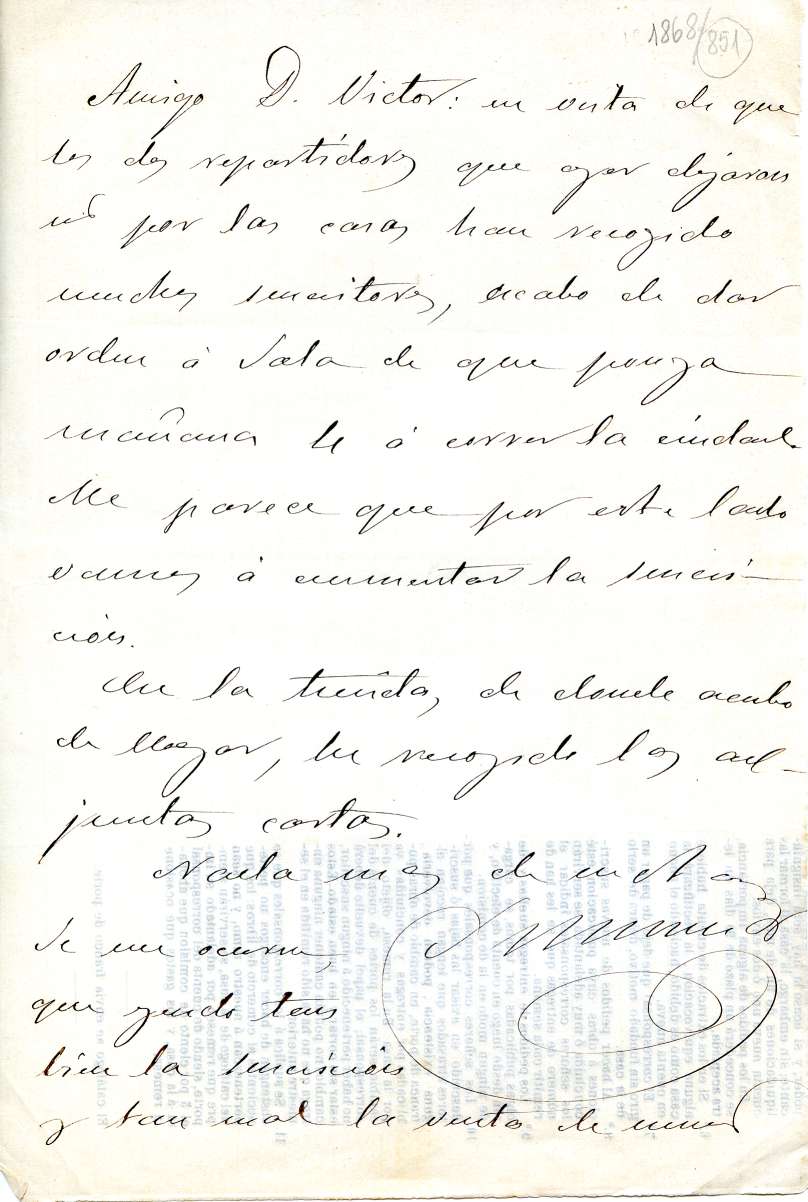 1868/851
Amigo D. Victor: en vista de que
los dos repartidores que ayer dejaron
nos por las casas han recogido
muchos suscritores, acabo de dar
orden á Sala de que ponga
mañana 4 á correr la ciudad.
Me parece que por este lado
vamos á aumentar la suscri-
ción.
En la tienda, de donde acabo
de llegar, he recogido las ad-
juntas cartas.
Nada mas de
Se me ocurre,
que yendo tan
bien la suscrición
y tan mal la venta de nums